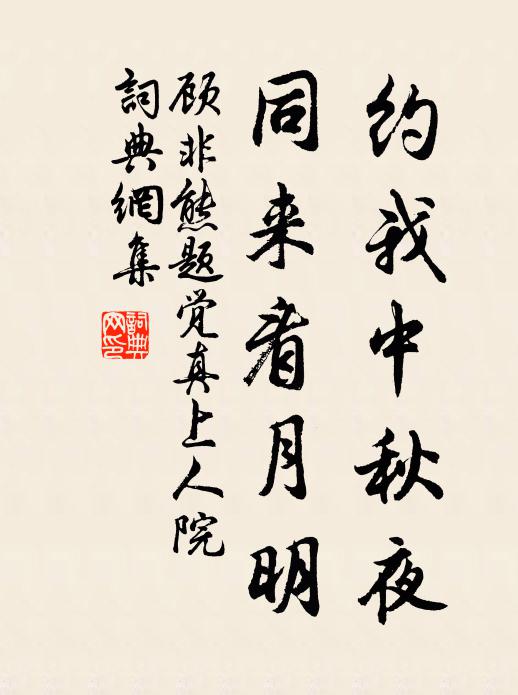 约我中秋夜
同来看月明
顾非熊题觉真上人院
詞典網集
詞典
网印